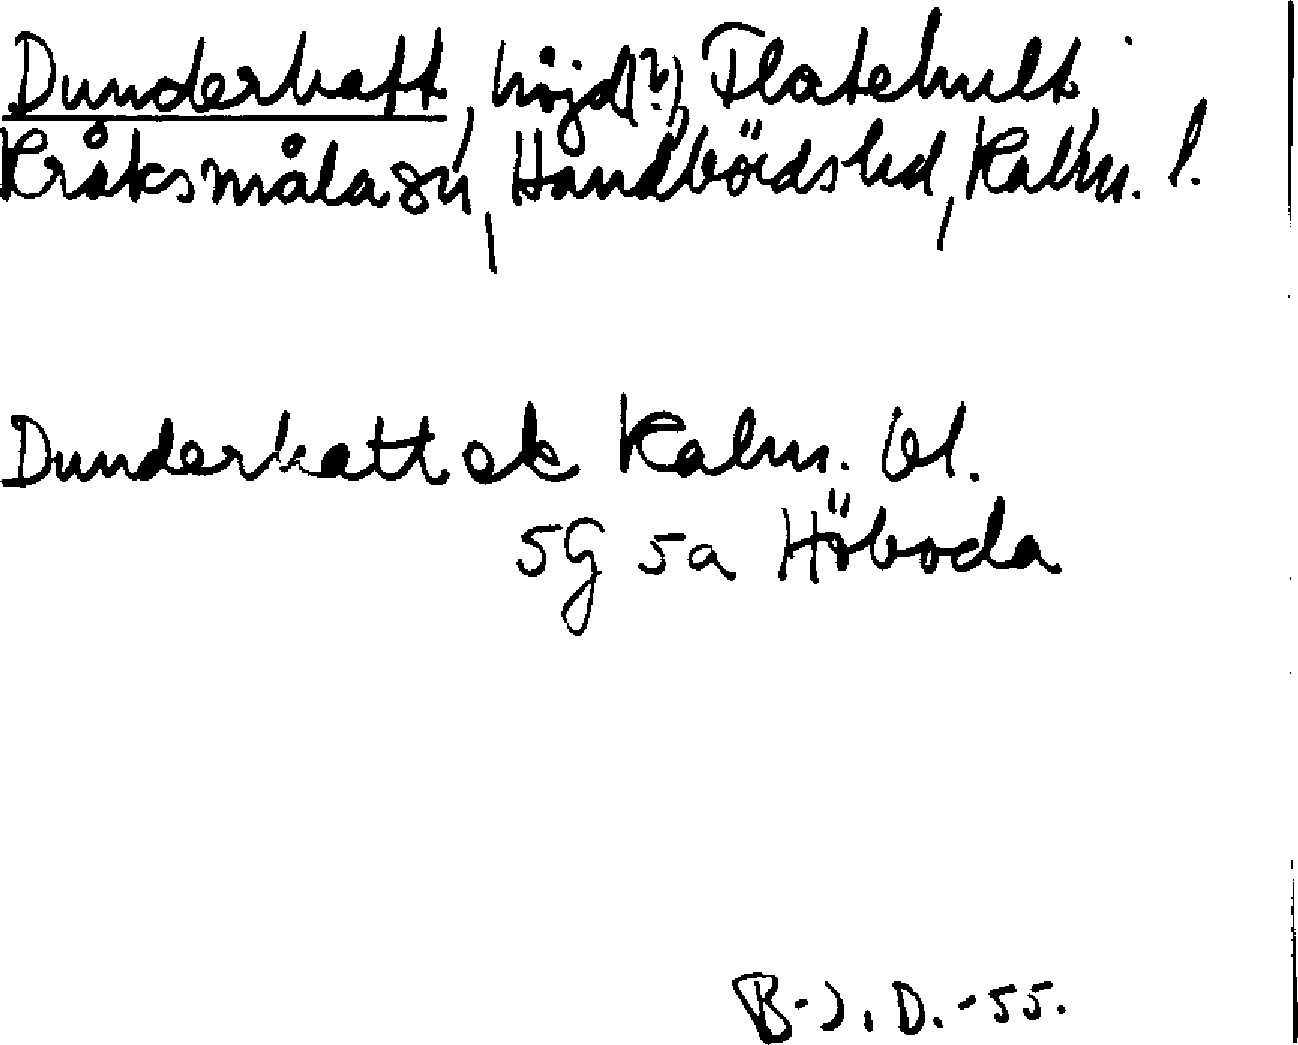 Dunderkatt, höjd(?), Flatehult,
Kråksmåla sn, Handbörds hd, Kalm. l.
Dunderkatt ek Kalm. bl.
5G 5a Höboda
B-J. D. -55.